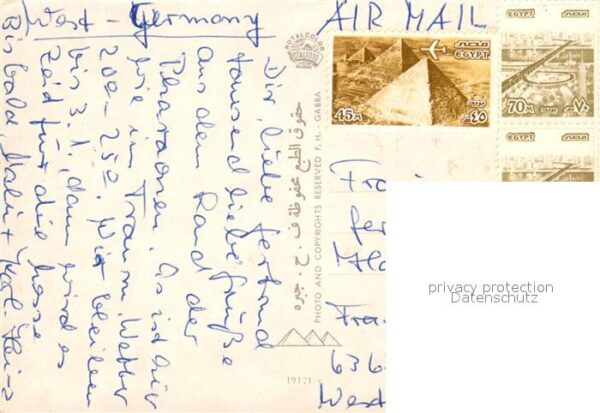 West - Germany
AIR MAIL
Dir, liebe Gertrud
tausend liebe Grüße
aus dem Land der
Pharaonen. Es ist hier
wie im Traum, Wetter
200-250. Wir bleiben
bis 3.1., dann wird es
Zeit für die
Bis bald, Malu + Karl-Heinz
ROYALCOLOR
حقوق الطبع محفوظة ف . ح . جبره
PHOTO AND COPYRIGHTS RESERVED F. H. - GABRA
19121
EGYPT مصر
45M ٤٥
EGYPT مصر
70M ٧٠
EGYPT مصر
Fra
Ger
Fra
636
West
privacy protection
Datenschutz